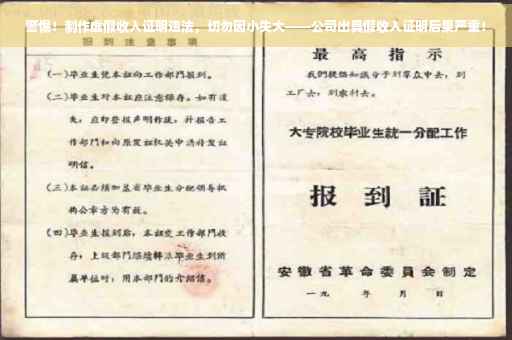 警惕！制作虚假收入证明违法，切勿因小失大——公司出具假收入证明后果严重！
报到注意事项
(一)毕业生凭本证向工作部门报到。
(二)毕业生对本证应注意保存。如有遗
失，应即登报声明作废，并报告工
作部门和向原发证机关申请补发证
明信。
(三)本证必须加盖省毕业生分配领导机
构公章方为有效。
(四)毕业生报到后，本证交工作部门收
存；上级部门继续转派毕业生到所
属单位时，用本部门的介绍信。
最高指示
我们提倡知识分子到群众中去，到
工厂去，到农村去。
大专院校毕业生统一分配工作
报到证
安徽省革命委员会制定
一九 年 月 日